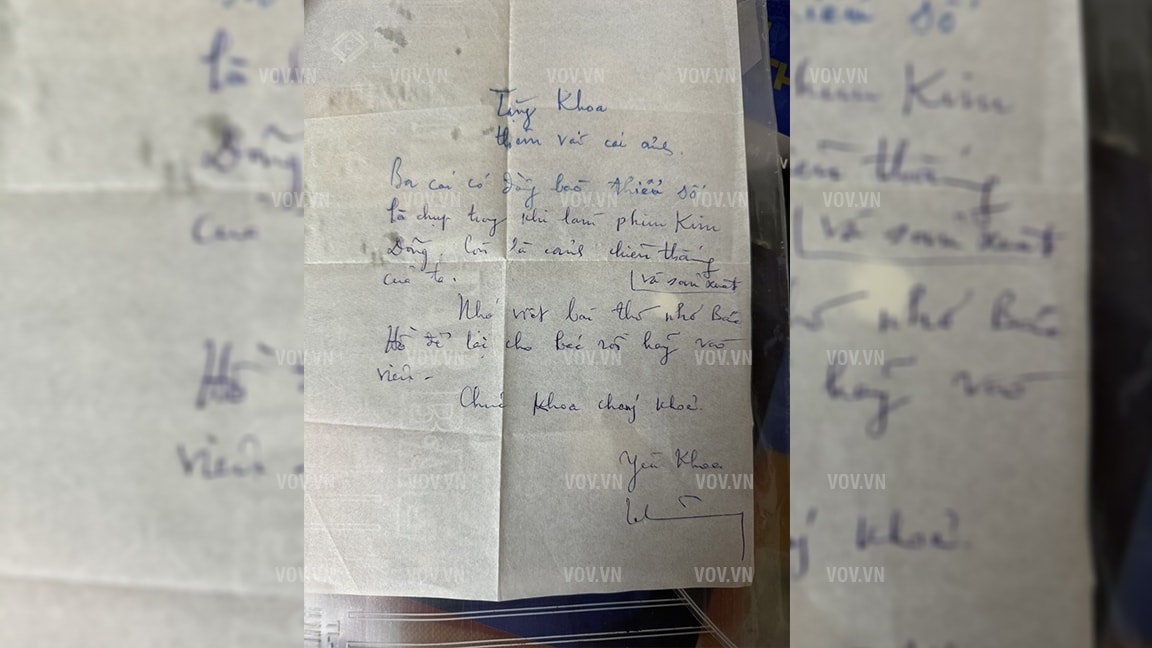 Tặng Khoa
thêm vài cái ảnh.
Ba cái có đồng bào thiểu số
là chụp trong khi làm phim Kim
Đồng, lòn là cảnh chiến thắng
của ta. và sản xuất
Nhớ viết bài thơ nhớ Bác
Hồ để lại cho bác rồi hãy vào
viện.
Chúc Khoa chóng khoẻ.
Yêu Khoa
VOV.VN